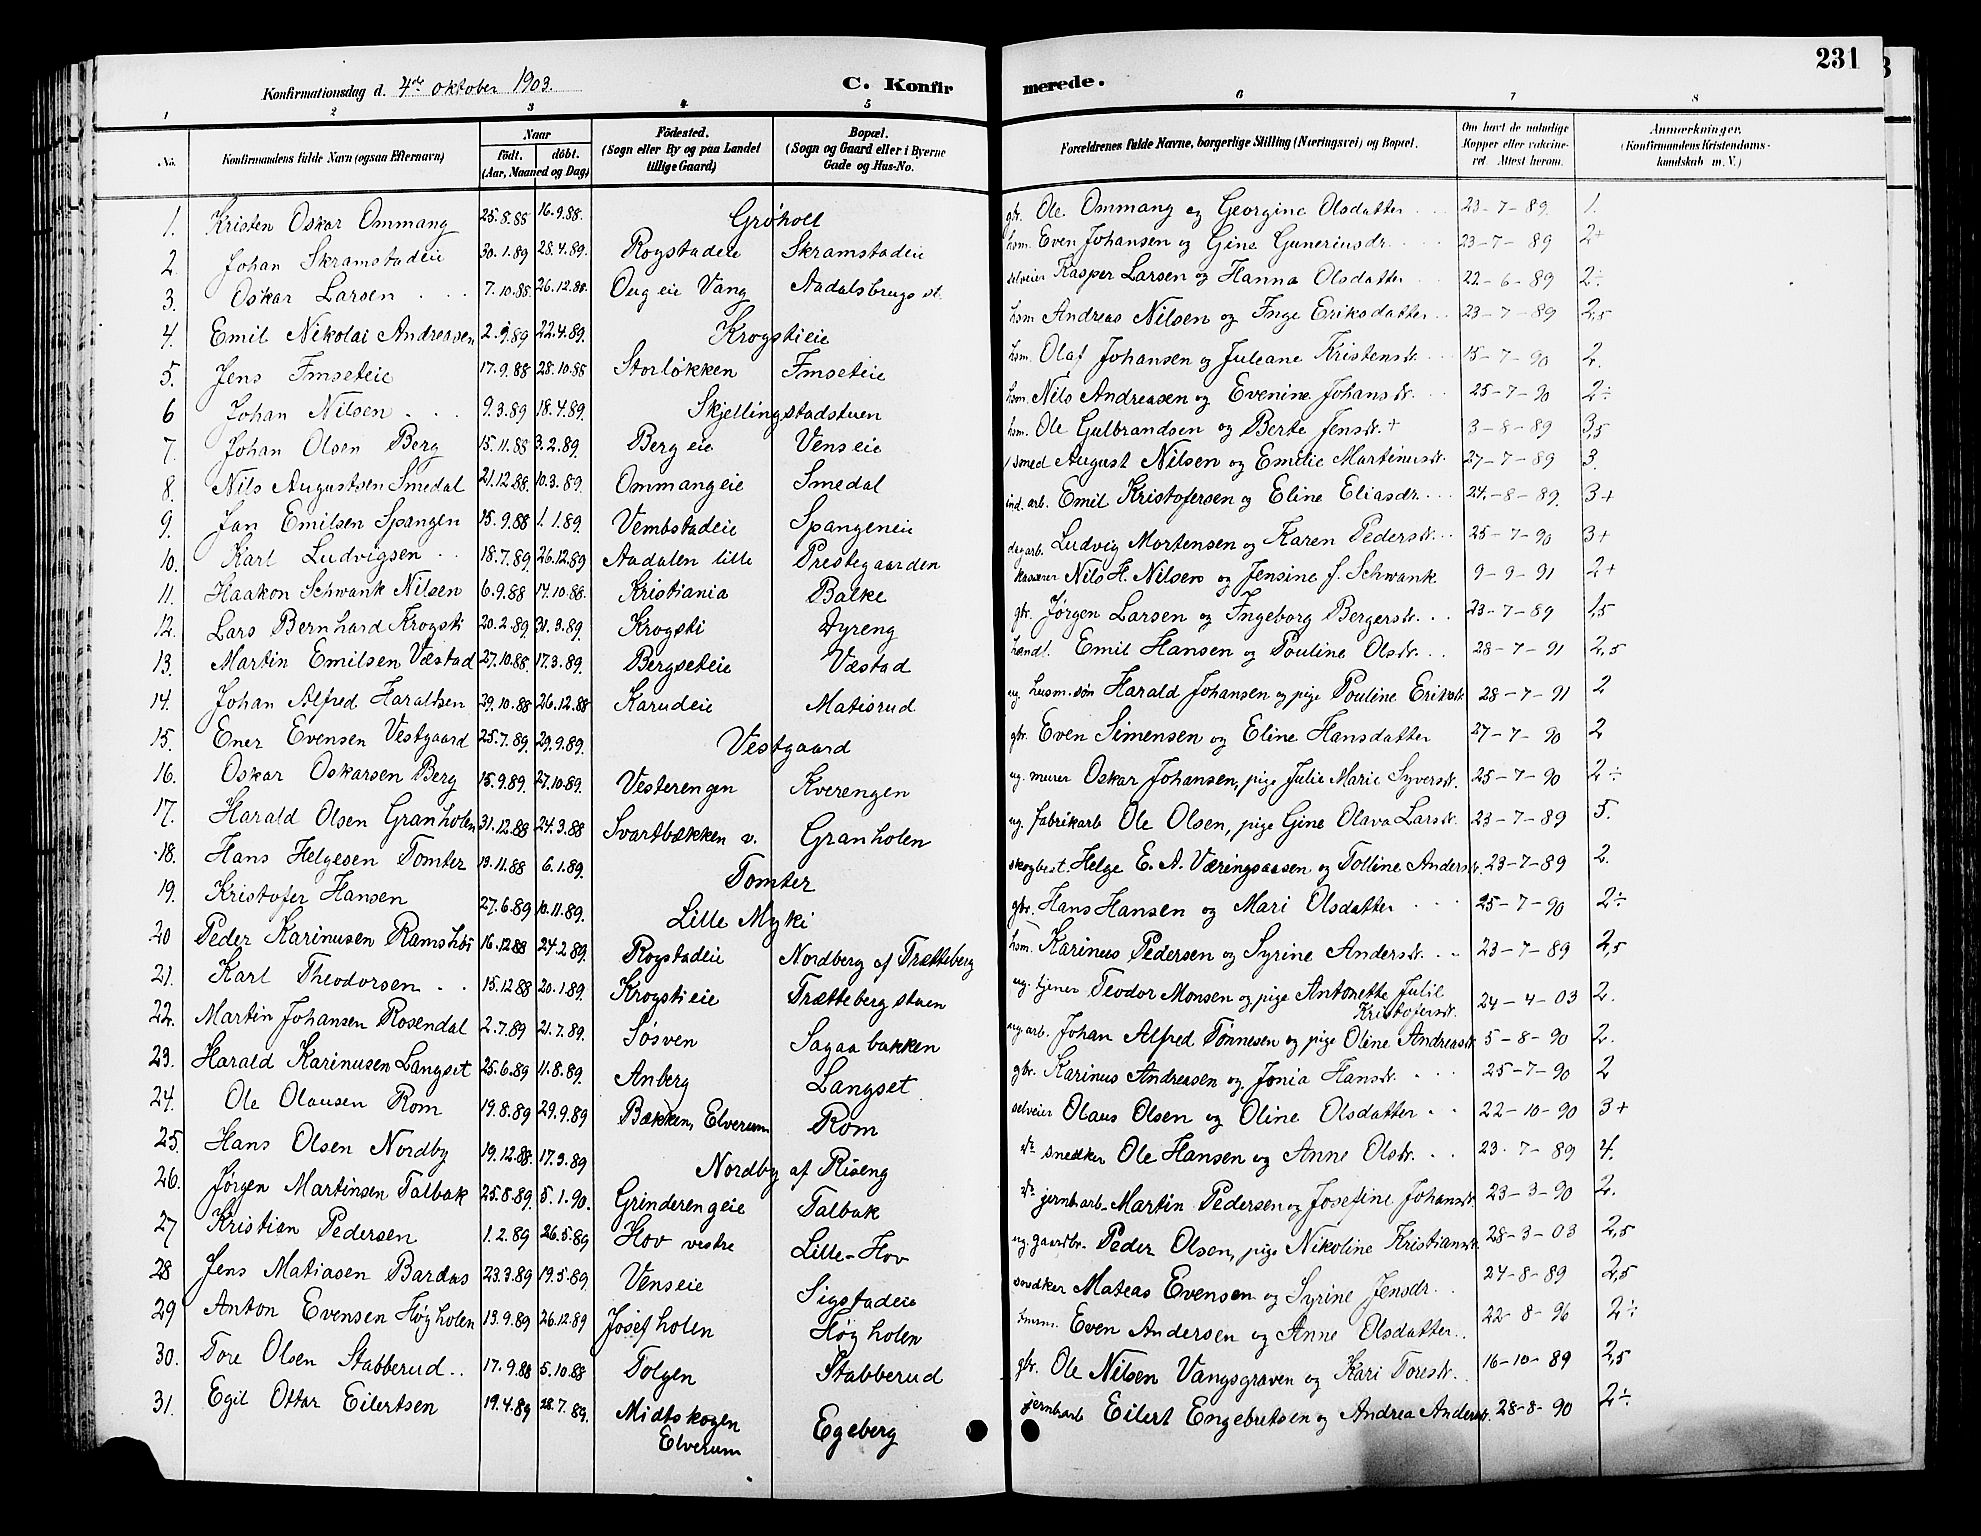 231
Konfirmationsdag d. 4de oktober 1903. C. Konfirmerede.
1 2 3 4 5 6 7 8
No. Konfirmandens fulde Navn (ogsaa Efternavn) Naar født. døbt. (Aar, Maaned og Dag) Fødested. (Sogn eller By og paa Landet tillige Gaard) Bopæl. (Sogn og Gaard eller i Byerne Gade og Hus-No. Forældrenes fulde Navne, borgerlige Stilling (Næringsvei) og Bopæl. Om havt de naturlige Kopper eller vakcineret. Attest herom. Anmærkninger. (Konfirmandens Kristendomskundskab m. V.)
1. Kristen Oskar Ommang 25.8.88 16.9.88. Grøholt gbr. Ole Ommang og Georgine Olsdatter 23-7-89. 1.
2. Johan Skramstadeie 30.1.89 28.4.89. Rogstadeie Skramstadeie hsm. Even Johansen og Gine Guneriusdr. 23-7-89 2+
3. Oskar Larsen 7.10.88 26.12.88. eie Vang Aadalsbrugs st. selveier Kasper Larsen og Hanna Olsdatter 22-6-89 2÷
4. Emil Nikolai Andreasen 2.9.89 22.4.89. Krogstieie hsm Andreas Nilsen og Inge Eriksdatter 23-7-89 2,5
5. Jens Imseteie 17.9.88 28.10.88 Storløkken Imseteie hsm. Olaf Johansen og Juleane Kristensdr. 15-7-90 2.
6 Johan Nilsen 9.3.89 18.4.89. Skjellingstadstuen hsm. Nils Andreasen og Evenine Johansdr. 25-7-90 2÷
7. Johan Olsen Berg 15.11.88 3.2.89. Berg eie Vens eie hsm. Ole Gulbrandsen og Berte Jensdr.+ 3-8-89 3,5
8. Nils Augustsen Smedal 21.12.88. 10.3.89. Ommangeie Smedal smed August Nilsen og Emilie Martinusdr. 27-7-89 3.
9. Jan Emilsen Spangen 15.9.88 1.1.89. Vembstadeie Spangeneie ind. arb. Emil Kristofersen og Eline Eliasdr. 24-8-89. 3+
10. Karl Ludvigsen 18.7.89. 26.12.89 Aadalen lille Prestegaarden dagarb. Ludvig Mortensen og Karen Pedersdr. 25-7-90 3+
11. Haakon Schwank Nilsen 6.9.88 14.10.88. Kristiania Balke kasserer Nils H. Nilsen og Jensine f. Schwank 9-9-91 2+
12. Lars Bernhard Krogsti 20.2.89 31.3.89. Krogsti Dyreng gbr. Jørgen Larsen og Ingeborg Bergersdr. 23-7-89 1,5
13. Martin Emilsen Væstad 27.10.88. 17.3.89. Bergseteie Væstad handl. Emil Hansen og Pouline Olsdr. 28-7-91 2,5
14. Johan Alfred Haraldsen 29.10.88 26.12.88 Karudeie Matisrud ug. husm. søn Harald Johansen og pige Pouline Eriksdr. 28-7-91 2
15. Ener Evensen Vestgaard 25.7.89. 29.9.89. Vestgaard gbr. Even Simensen og Eline Hansdatter 27-7-90 2
16. Oskar Oskarsen Berg 15.9.89. 27.10.89. Vesterengen Kverengen ug. murer Oskar Johansen, pige Julie Marie Syversdr. 25-7-90 2÷
17. Harald Olsen Granholen 31.12.88 24.3.88 Svartbækken v. Granholen ug. fabrikarb Ole Olsen, pige Gine Olava Larsdr. 23-7-89 5.
18. Hans Helgesen Tomter 13.11.88 6.1.89. Tomter skogbest. Helge E. A. Væringsaasen og Tolline Andersdr. 23-7-89 2.
19. Kristofer Hansen 27.6.89 10.11.89. Lille Myki gbr. Hans Hansen og Mari Olsdatter 25-7-90 2÷
20 Peder Karinusen Ramshøi 16.12.88 24.2.89. Rogstadeie Nordberg af Trætteberg hsm. Karinus Pedersen og Syrine Andersdr. 23-7-89 2,5
21. Karl Theodorsen 15.12.88 20.1.89. Krogstieie Trættebergstuen ug. tjener Teodor Monsen og pige Antonette Julie Kristofersdr. 24-4-03 2.
22. Martin Johansen Rosendal 2.7.89 21.7.89. Søsven Sagaabakken ug. arb. Johan Alfred Tønnesen og pige Oline Andreasdr. 5-8-90 2.
23. Harald Karinusen Langset 25.6.89 11.8.89. Anberg Langset gbr. Karinus Andreasen og Jonia Hansdr. 25-7-90 2
24. Ole Olausen Rom 19.8.89 29.9.89 Bækken, Elverum Rom selveier Olaus Olsen og Oline Olsdatter 22-10-90 3+
25. Hans Olsen Nordby 19.12.88. 17.3.89 Nordby af Riseng snedker Ole Hansen og Anne Olsdr. 23-7-89 4.
26. Jørgen Martinsen Talbak 25.8.89. 5.1.90. Grinderengeie Talbak jernb.arb. Martin Pedersen og Josefine Johansdr. 23-3-90 2.
27 Kristian Pedersen 1.2.89 26.5.89 Hov vestre Lille-Hov ug. gaardbr. Peder Olsen, pige Nikoline Kristiansdr. 28-3-03 2,5
28 Jens Matiasen Bardas 23.3.89 19.5.89. Venseie Sigstadeie snedker Mateas Evensen og Syrine Jensdr. 24-8-89 2,5
29 Anton Evensen Høgholen 13.9.89 26.12.89 Josefholen Høgholen Even Andersen og Anne Olsdatter 22-8-96 2÷
30. Tore Olsen Stabberud 17.9.88 5.10.88 Tolgen Stabberud gbr. Ole Nilsen Vangsgraven og Kari Toresdr. 16-10-89 2,5
31. Egil Ottar Eilertsen 19.4.89 28.7.89. Midtskogen Elverum Egeberg jernb.arb Eilert Engebretsen og Andrea Andersdr. 28-8-90 2÷